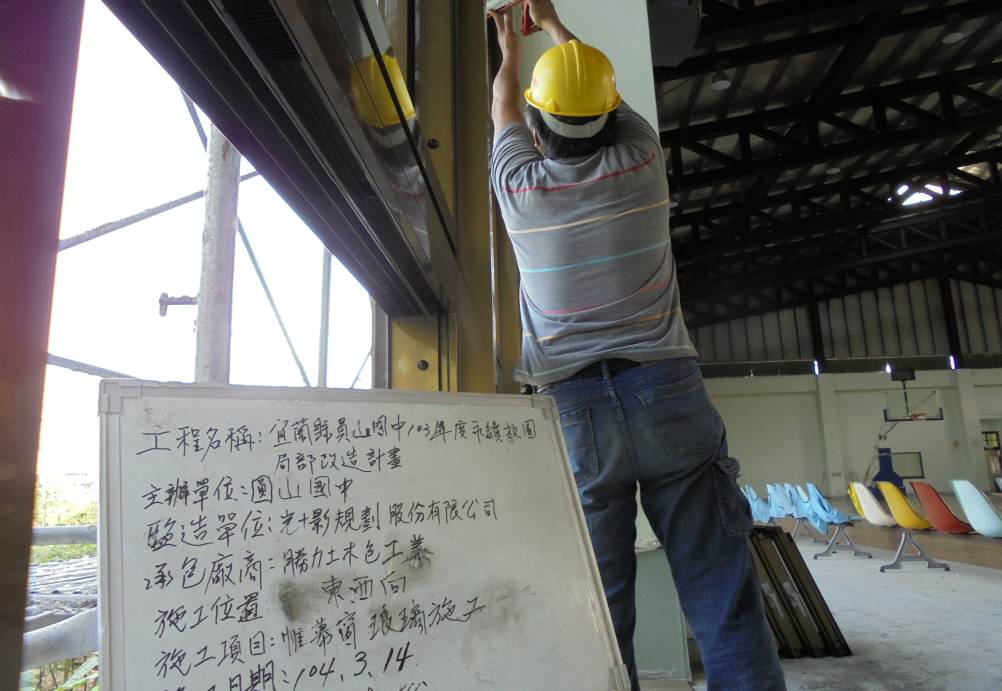 工程名稱:宜蘭縣員山國中103年度永續校園
局部改造計畫
主辦單位:圓山國中
監造單位:光+影規劃股份有限公司
承包廠商:勝力土木包工業
施工位置 東西向
施工項目:帷幕窗玻璃施工
日期:104.3.14